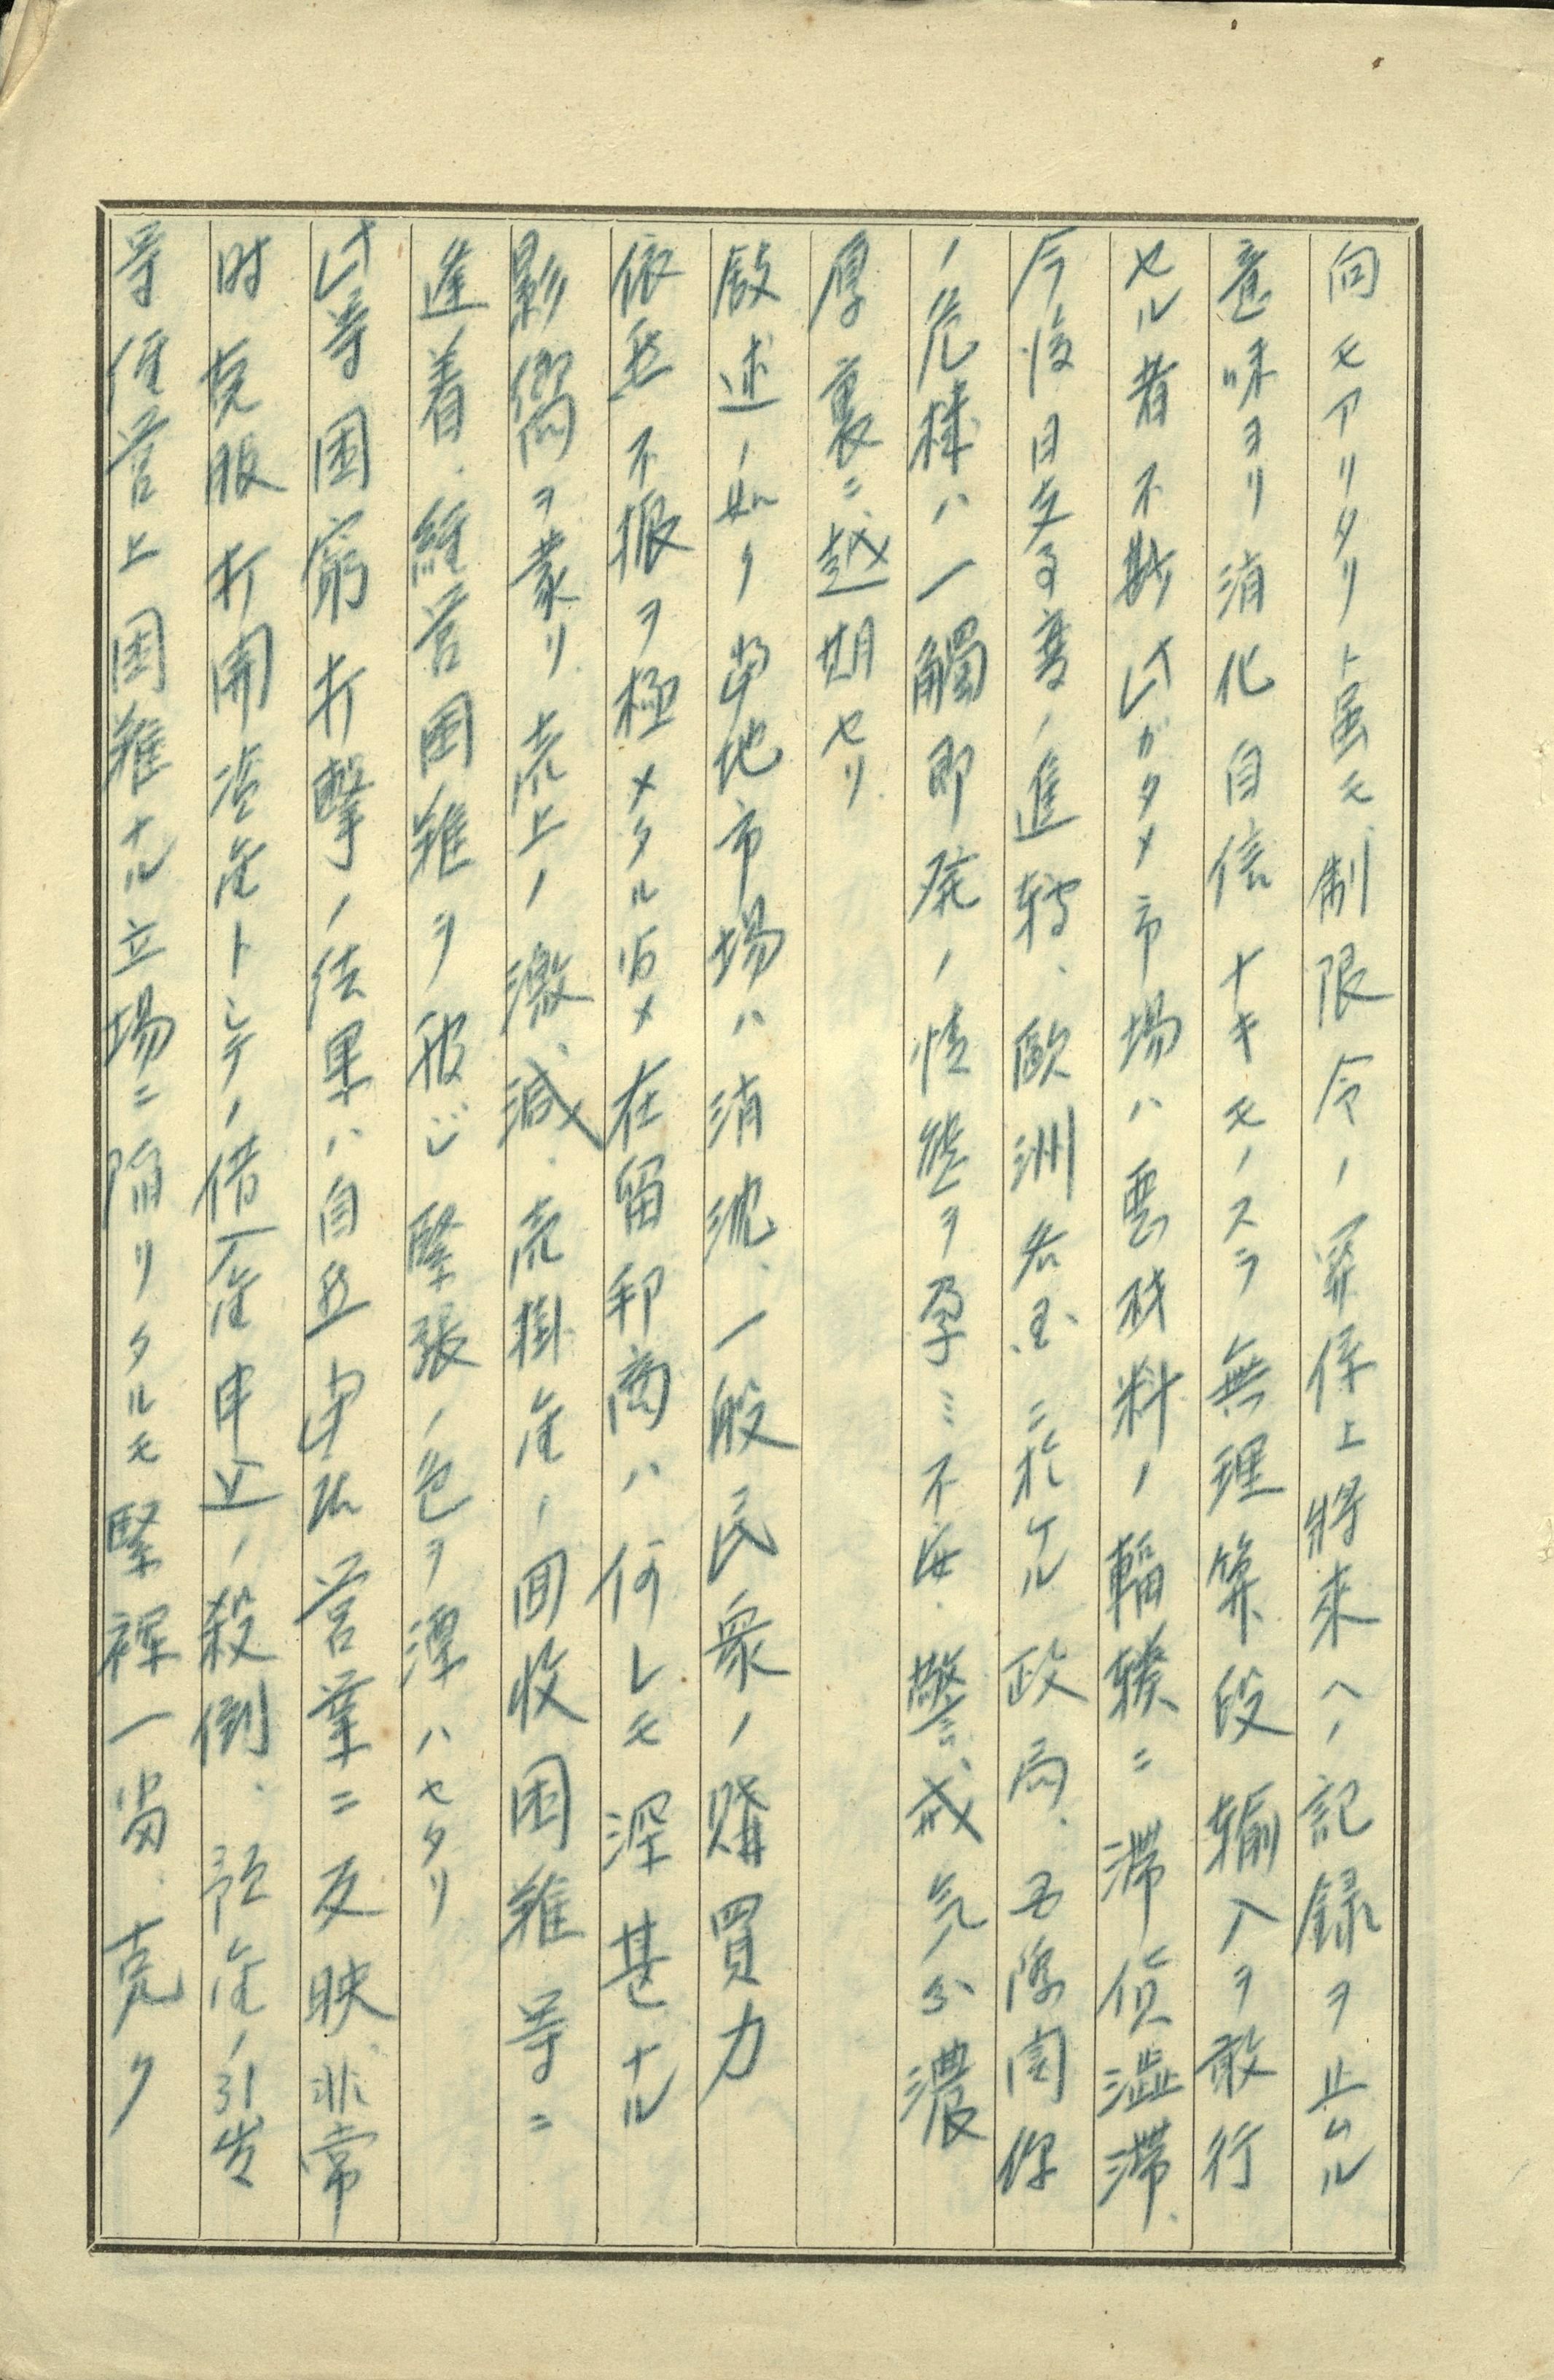 向モアリタリト虽モ、制限令ノ関係上将来ヘノ記録ヲ止ムル
意味ヨリ消化自信ナキモノスラ無理算段輸入ヲ敢行
セル者不尠 之ガタメ市場ハ悪材料ノ輻輳ニ滞貨澁滞、
今後日支事変ノ進転、欧洲各国ニ於ケル政局、国際関係
ノ危機ハ一觸即発ノ情態ヲ孕ミ不安、警戒気分濃
厚裏ニ越期セリ
叙述ノ如ク当地市場ハ消沈、一般民衆ノ購買力
依然不振ヲ極メタル為メ在留邦商ハ何レモ深甚ナル
影響ヲ蒙リ売上ノ激減、売掛金ノ回收困難等ニ
逢着、経営困難ヲ報ジ緊張ノ色ヲ漂ハセタリ
此等困窮打撃ノ結果ハ自然 営業ニ反映、非常
時克服打開資金トシテノ借入金申込ノ殺倒、預金ノ引出
等経営上困難ナル立場ニ陥リタルモ緊褌一番、克ク